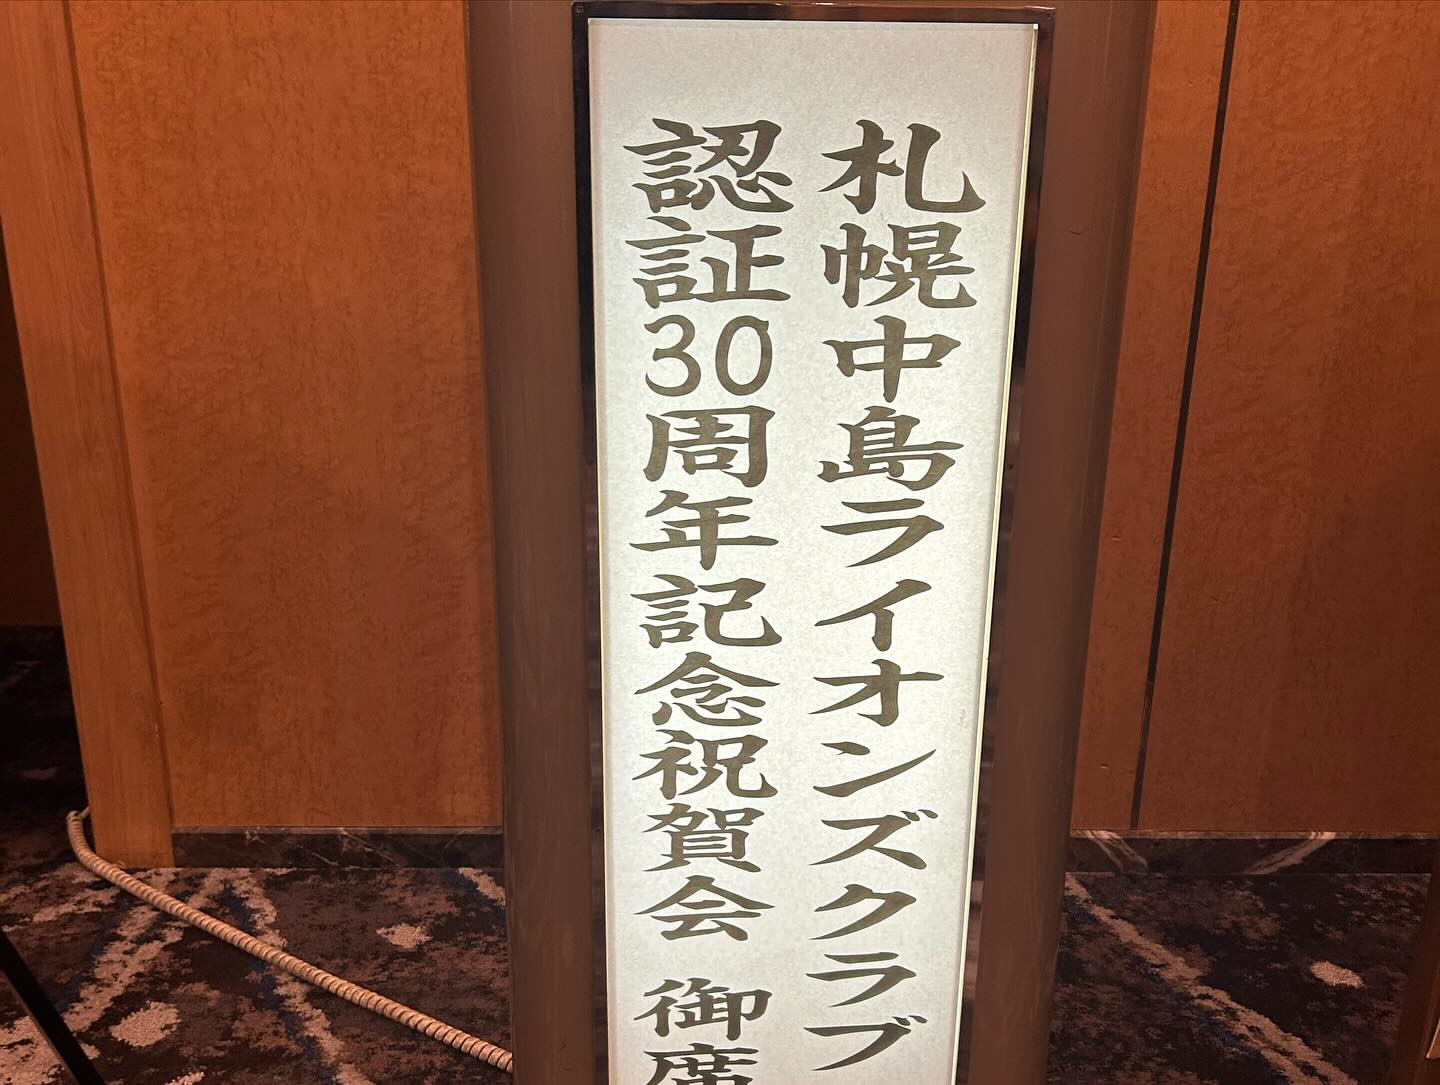 札幌中島ライオンズクラブ
認証30周年記念祝賀会 御席